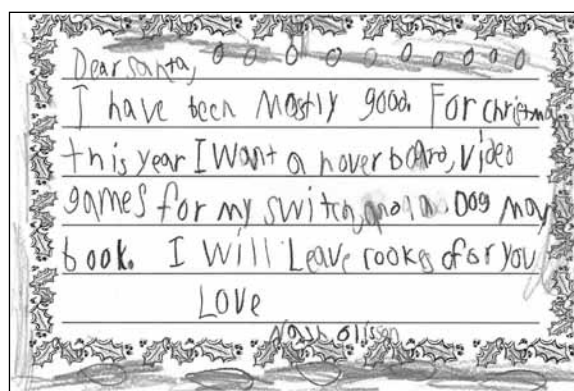 Dear santa,
I have been Mostly good. For christma
this year I want a hoverboard, video
games for my switch, and a Dog May
book. I Will Leave cookes for you
Love